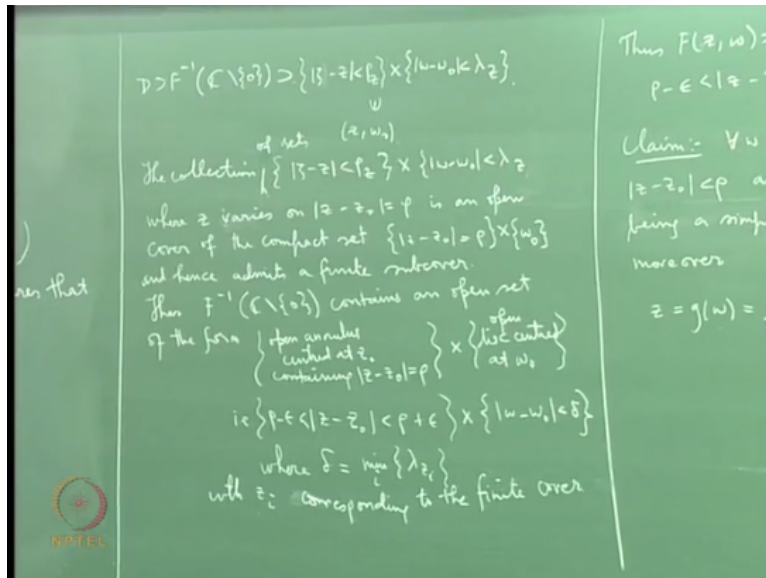 )
res that
D ⊃ F⁻¹(ℂ∖{0}) ⊃ {|ζ-z|<ρ_z} × {|w-w₀|<λ_z}.
∪
(z, w₀)
of sets
The collection {|ζ-z|<ρ_z} × {|w-w₀|<λ_z
where z varies on |z-z₀|=ρ is an open
cover of the compact set {|z-z₀|=ρ} × {w₀}
and hence admits a finite subcover.
Thus F⁻¹(ℂ∖{0}) contains an open set
of the form {open annulus centred at z₀ containing |z-z₀|=ρ} × {open disc centred at w₀}
ie {ρ-ε<|z-z₀|<ρ+ε} × {|w-w₀|<δ}
where δ = min_i {λ_{z_i}}
with z_i corresponding to the finite cover
Thus F(z, w)
ρ-ε<|z-
Claim:- ∀ w
|z-z₀|<ρ a
being a simp
moreover
z = g(w) =
NPTEL